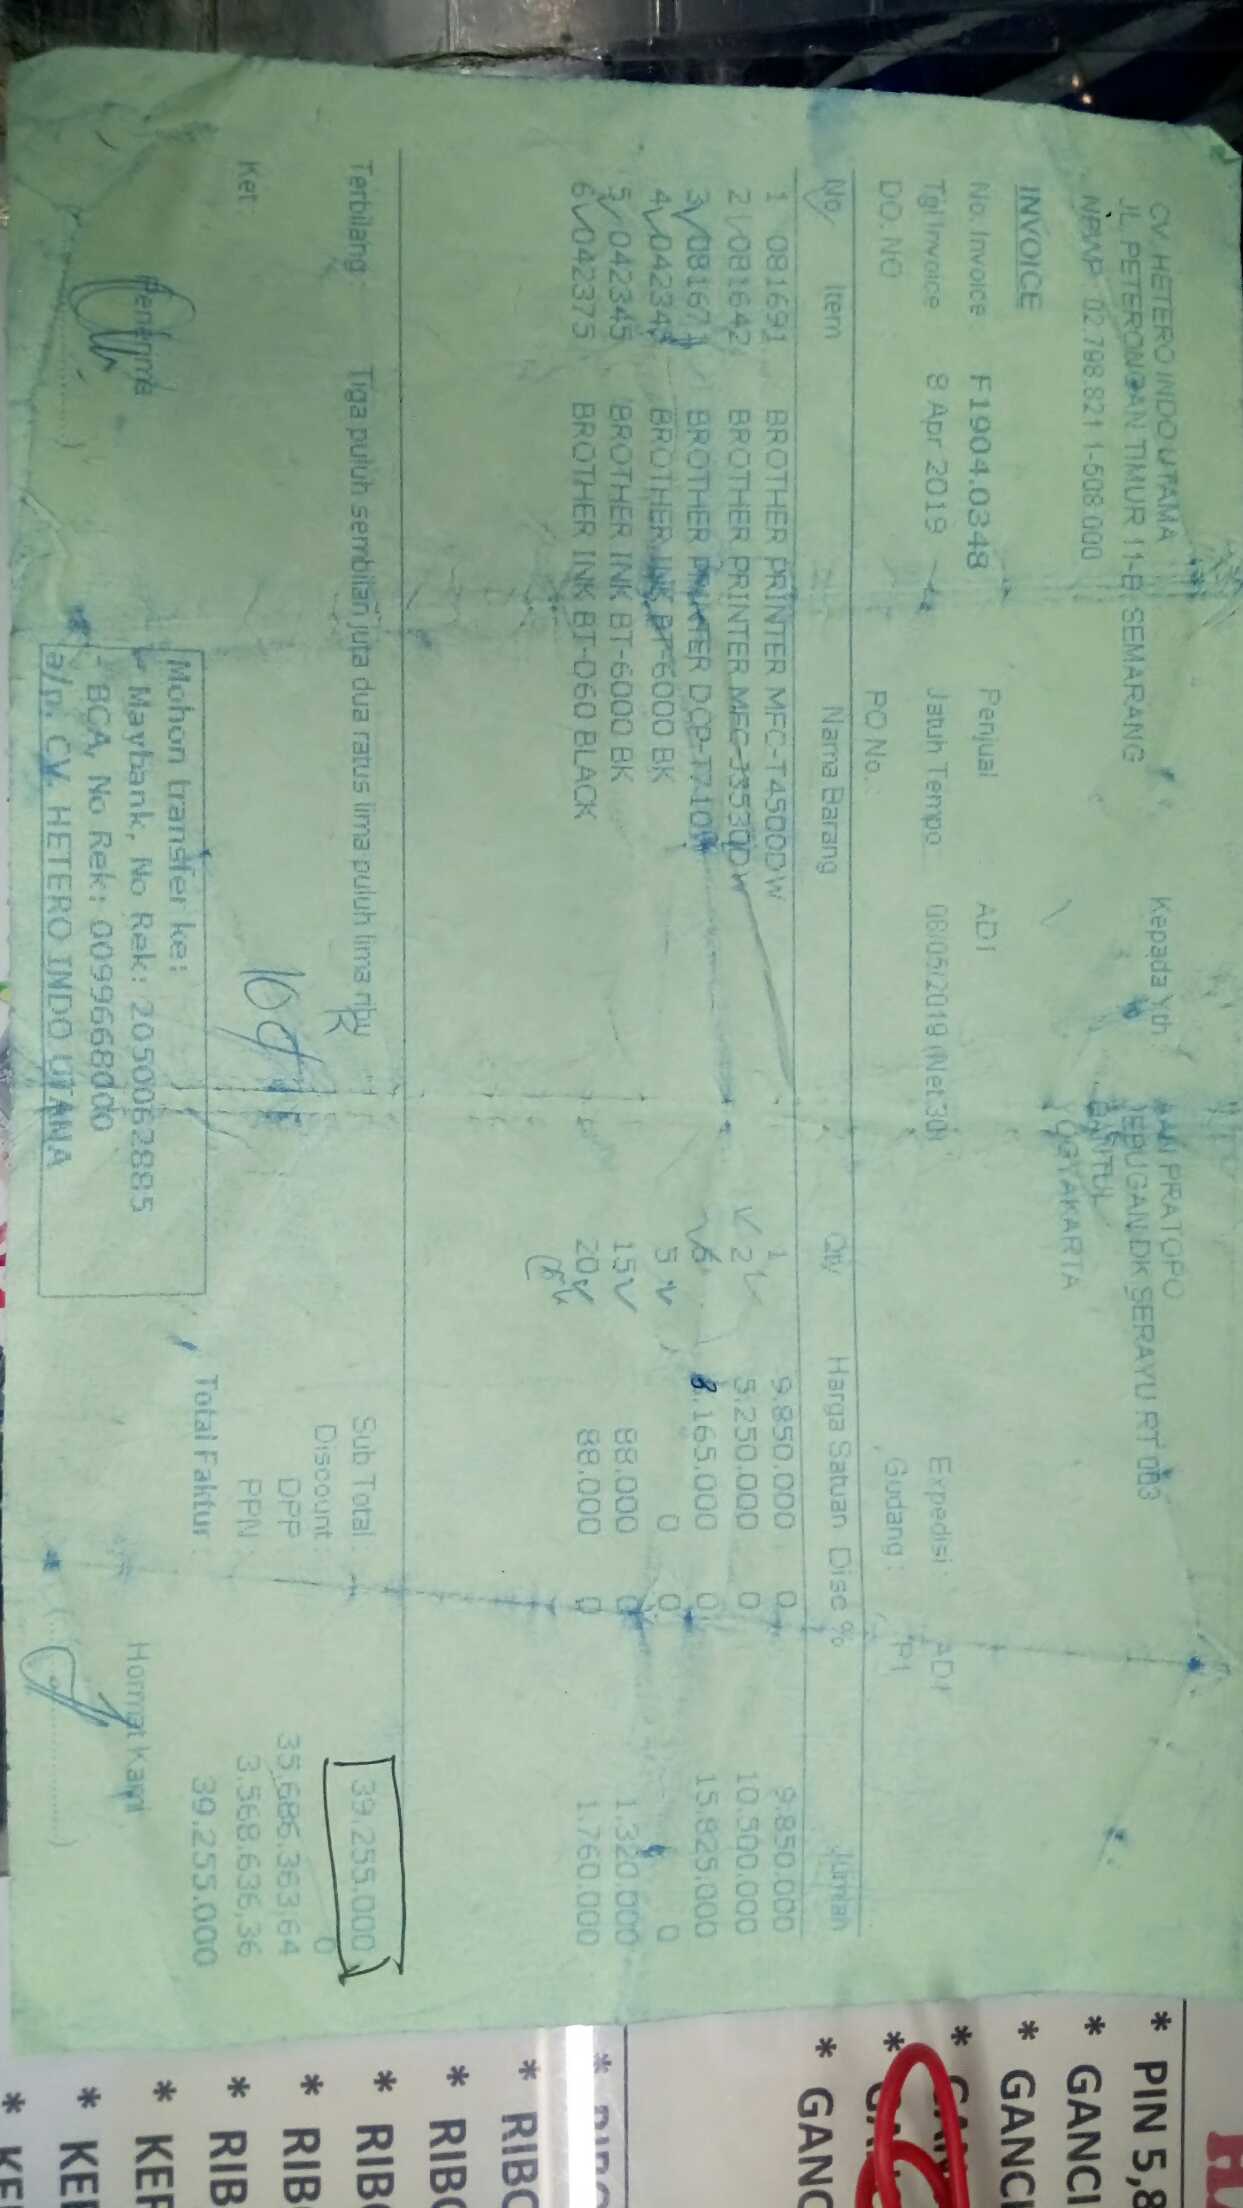 CV. HETERO INDO UTAMA
JL. PETERONGAN TIMUR 11-B SEMARANG
NPWP : 02.798.821.1-508.000
Kepada Yth
PRATOPO
DK SERAYU RT 003
BANTUL
YOGYAKARTA
INVOICE
No. Invoice F1904.0348 Penjual ADI
Tgl Invoice 8 Apr 2019 Jatuh Tempo 08/05/2019 (Net 30) Expedisi : ADI
DO. NO PO No. : Gudang : P1
No Item Nama Barang Qty Harga Satuan Disc % Jumlah
1 081691 BROTHER PRINTER MFC-T4500DW 1 9.850.000 0 9.850.000
2 081642 BROTHER PRINTER MFC-J3530DW 2 5.250.000 0 10.500.000
3 081671 BROTHER PRINTER .165.000 0 15.825.000
4 BROTHER INK BT-6000 BK 5 0 0 0
5 042345 BROTHER INK BT-6000 BK 15 88.000 0 1.320.000
6 042375 BROTHER INK BT-D60 BLACK 20 88.000 0 1.760.000
Terbilang : Tiga puluh sembilan juta dua ratus lima puluh lima ribu
Sub Total : 39.255.000
Discount : 0
DPP 35.686.363,64
Ket : PPN : 3.568.636,36
Total Faktur : 39.255.000
Mohon transfer ke:
- Maybank, No Rek: 2050062885
- BCA, No Rek: 0099668000
a/n. CV. HETERO INDO UTAMA
Penerima
Hormat Kami
* PIN 5,8
* GANCI
* GANCI
*
*
* GANC
*
* RIBO
* RIBO
* RIBO
* RIB
* RIB
* KEF
* KEF
* KE